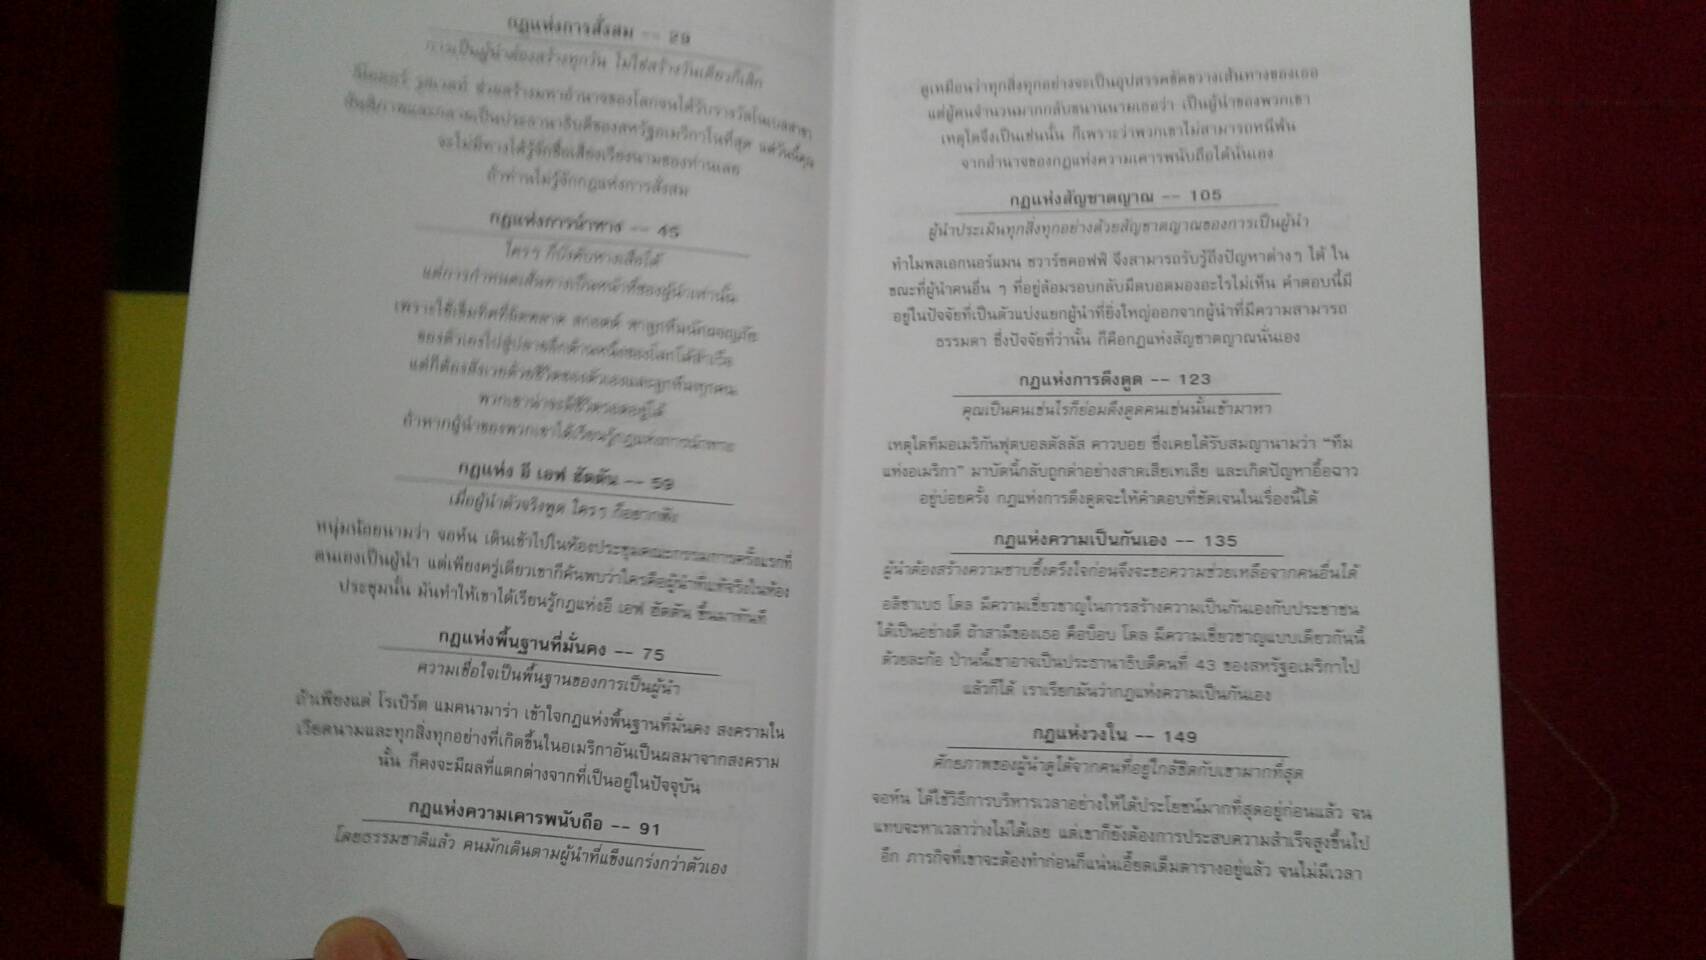 กฎแห่งการสั่งสม -- 29
การเป็นผู้นำต้องสร้างทุกวัน ไม่ใช่สร้างวันเดียวก็เลิก
ธีโอดอร์ รูสเวลท์ ช่วยสร้างมหาอำนาจของโลกจนได้รับรางวัลโนเบลสาขา
สันติภาพและกลายเป็นประธานาธิบดีของสหรัฐอเมริกาในที่สุด แต่วันนี้คุณ
จะไม่มีทางได้รู้จักชื่อเสียงเรียงนามของท่านเลย
ถ้าท่านไม่รู้จักกฎแห่งการสั่งสม
กฎแห่งการนำทาง -- 45
ใครๆ ก็บังคับหางเสือได้
แต่การกำหนดเส้นทางเป็นหน้าที่ของผู้นำเท่านั้น
เพราะใช้เข็มทิศที่ผิดพลาด สกอตต์ พาลูกทีมนักผจญภัย
ของตัวเองไปสู่ปลายอีกด้านหนึ่งของโลกได้สำเร็จ
แต่ก็ต้องสังเวยด้วยชีวิตของตัวเองและลูกทีมทุกคน
พวกเขาน่าจะมีชีวิตรอดอยู่ได้
ถ้าหากผู้นำของพวกเขาได้เรียนรู้กฎแห่งการนำทาง
กฎแห่ง อี เอฟ ฮัตตัน -- 59
เมื่อผู้นำตัวจริงพูด ใครๆ ก็อยากฟัง
หนุ่มน้อยนามว่า จอห์น เดินเข้าไปในห้องประชุมคณะกรรมการครั้งแรกที่
ตนเองเป็นผู้นำ แต่เพียงครู่เดียวเขาก็ค้นพบว่าใครคือผู้นำที่แท้จริงในห้อง
ประชุมนั้น มันทำให้เขาได้เรียนรู้กฎแห่งอี เอฟ ฮัตตัน ขึ้นมาทันที
กฎแห่งพื้นฐานที่มั่นคง -- 75
ความเชื่อใจเป็นพื้นฐานของการเป็นผู้นำ
ถ้าเพียงแต่ โรเบิร์ต แมคนามาร่า เข้าใจกฎแห่งพื้นฐานที่มั่นคง สงครามใน
เวียดนามและทุกสิ่งทุกอย่างที่เกิดขึ้นในอเมริกาอันเป็นผลมาจากสงคราม
นั้น ก็คงจะมีผลที่แตกต่างจากที่เป็นอยู่ในปัจจุบัน
กฎแห่งความเคารพนับถือ -- 91
โดยธรรมชาติแล้ว คนมักเดินตามผู้นำที่แข็งแกร่งกว่าตัวเอง
ดูเหมือนว่าทุกสิ่งทุกอย่างจะเป็นอุปสรรคขัดขวางเส้นทางของเธอ
แต่ผู้คนจำนวนมากกลับขนานนามเธอว่า เป็นผู้นำของพวกเขา
เหตุใดจึงเป็นเช่นนั้น ก็เพราะว่าพวกเขาไม่สามารถหนีพ้น
จากอำนาจของกฎแห่งความเคารพนับถือได้นั่นเอง
กฎแห่งสัญชาตญาณ -- 105
ผู้นำประเมินทุกสิ่งทุกอย่างด้วยสัญชาตญาณของการเป็นผู้นำ
ทำไมพลเอกนอร์แมน ชวาร์ซคอฟฟ์ จึงสามารถรับรู้ถึงปัญหาต่างๆ ได้ ใน
ขณะที่ผู้นำคนอื่น ๆ ที่อยู่ล้อมรอบกลับมืดบอดมองอะไรไม่เห็น คำตอบนี้มี
อยู่ในปัจจัยที่เป็นตัวแบ่งแยกผู้นำที่ยิ่งใหญ่ออกจากผู้นำที่มีความสามารถ
ธรรมดา ซึ่งปัจจัยที่ว่านั้น ก็คือกฎแห่งสัญชาตญาณนั่นเอง
กฎแห่งการดึงดูด -- 123
คุณเป็นคนเช่นไรก็ย่อมดึงดูดคนเช่นนั้นเข้ามาหา
เหตุใดทีมอเมริกันฟุตบอลดัลลัส คาวบอย ซึ่งเคยได้รับสมญานามว่า “ทีม
แห่งอเมริกา” มาบัดนี้กลับถูกด่าอย่างสาดเสียเทเสีย และเกิดปัญหาอื้อฉาว
อยู่บ่อยครั้ง กฎแห่งการดึงดูดจะให้คำตอบที่ชัดเจนในเรื่องนี้ได้
กฎแห่งความเป็นกันเอง -- 135
ผู้นำต้องสร้างความซาบซึ้งตรึงใจก่อนจึงจะขอความช่วยเหลือจากคนอื่นได้
อลิซาเบธ โดล มีความเชี่ยวชาญในการสร้างความเป็นกันเองกับประชาชน
ได้เป็นอย่างดี ถ้าสามีของเธอ คือบ็อบ โดล มีความเชี่ยวชาญแบบเดียวกันนี้
ด้วยละก้อ ป่านนี้เขาอาจเป็นประธานาธิบดีคนที่ 43 ของสหรัฐอเมริกาไป
แล้วก็ได้ เราเรียกมันว่ากฎแห่งความเป็นกันเอง
กฎแห่งวงใน -- 149
ศักยภาพของผู้นำดูได้จากคนที่อยู่ใกล้ชิดกับเขามากที่สุด
จอห์น ได้ใช้วิธีการบริหารเวลาอย่างให้ได้ประโยชน์มากที่สุดอยู่ก่อนแล้ว จน
แทบจะหาเวลาว่างไม่ได้เลย แต่เขาก็ยังต้องการประสบความสำเร็จสูงขึ้นไป
อีก ภารกิจที่เขาจะต้องทำก่อนก็แน่นเอี้ยดเต็มตารางอยู่แล้ว จนไม่มีเวลา